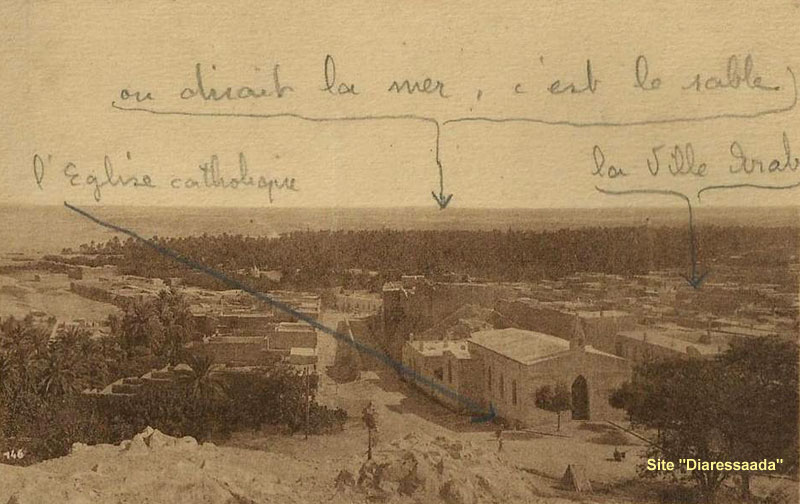 on dirait la mer, c'est le sable
l'Eglise catholique
la Ville Arab
146
Site "Diaressaada"